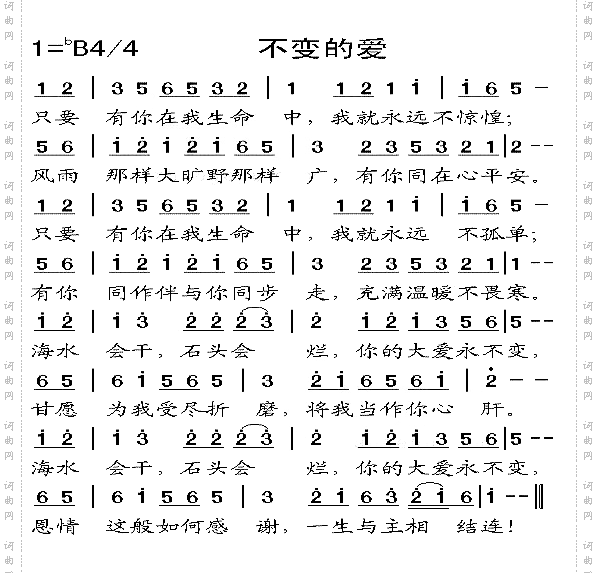 1=♭B4/4 不变的爱
1 2 | 3 5 6 5 3 2 | 1 1 2 1 i | i 6 5 –
只要 有你在我生命 中，我就永远不惊惶；
5 6 | i 2 i 2 i 6 5 | 3 2 3 5 3 2 1 | 2 – –
风雨 那样大旷野那样 广，有你同在心平安。
1 2 | 3 5 6 5 3 2 | 1 1 2 1 i | i 6 5 –
只要 有你在我生命 中，我就永远 不孤单；
5 6 | i 2 i 2 i 6 5 | 3 2 3 5 3 2 1 | 1 – –
有你 同作伴与你同步 走，充满温暖不畏寒。
i 2 | i 3 2 2 2 3 | 2 i 2 i 3 5 6 | 5 – –
海水 会干，石头会 烂，你的大爱永不变，
6 5 | 6 i 5 6 5 | 3 2 i 6 5 6 i | 2 – –
甘愿 为我受尽折 磨，将我当作你心 肝。
i 2 | i 3 2 2 2 3 | 2 i 2 i 3 5 6 | 5 – –
海水 会干，石头会 烂，你的大爱永不变，
6 5 | 6 i 5 6 5 | 3 2 i 6 3 2 i 6 | i – – ‖
恩情 这般如何感 谢，一生与主相 结连！
词曲网
词曲网
词曲网
词曲网
词曲网
词曲网
词曲网
词曲网
词曲网
词曲网